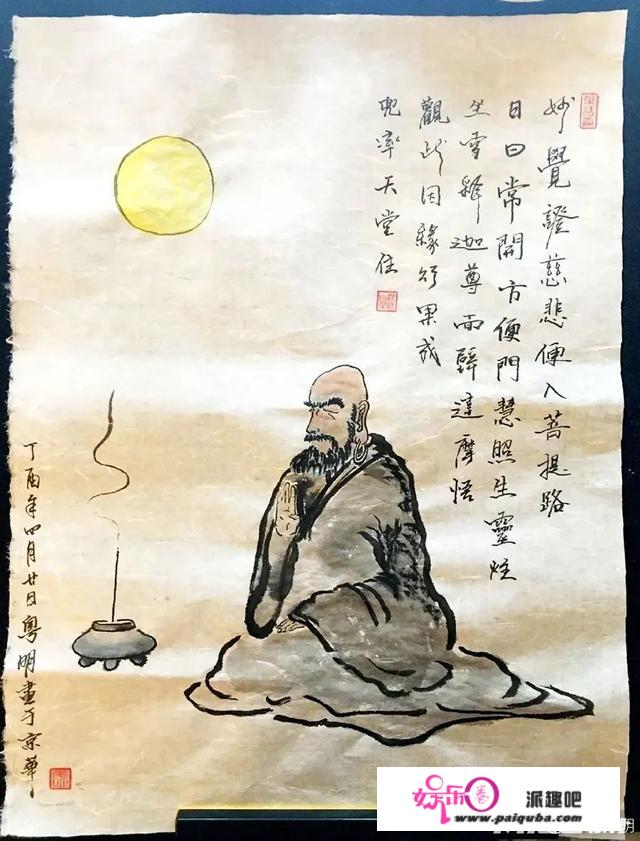 妙覺證慈悲便入菩提路
日日常開方便門慧照生靈炷
坐雪釋迦尊面壁達摩悟
觀此因緣行果成
兜率天堂住
丁酉年四月廿日粵明畫于京華
娱乐圈
派趣吧
www.paiquba.com